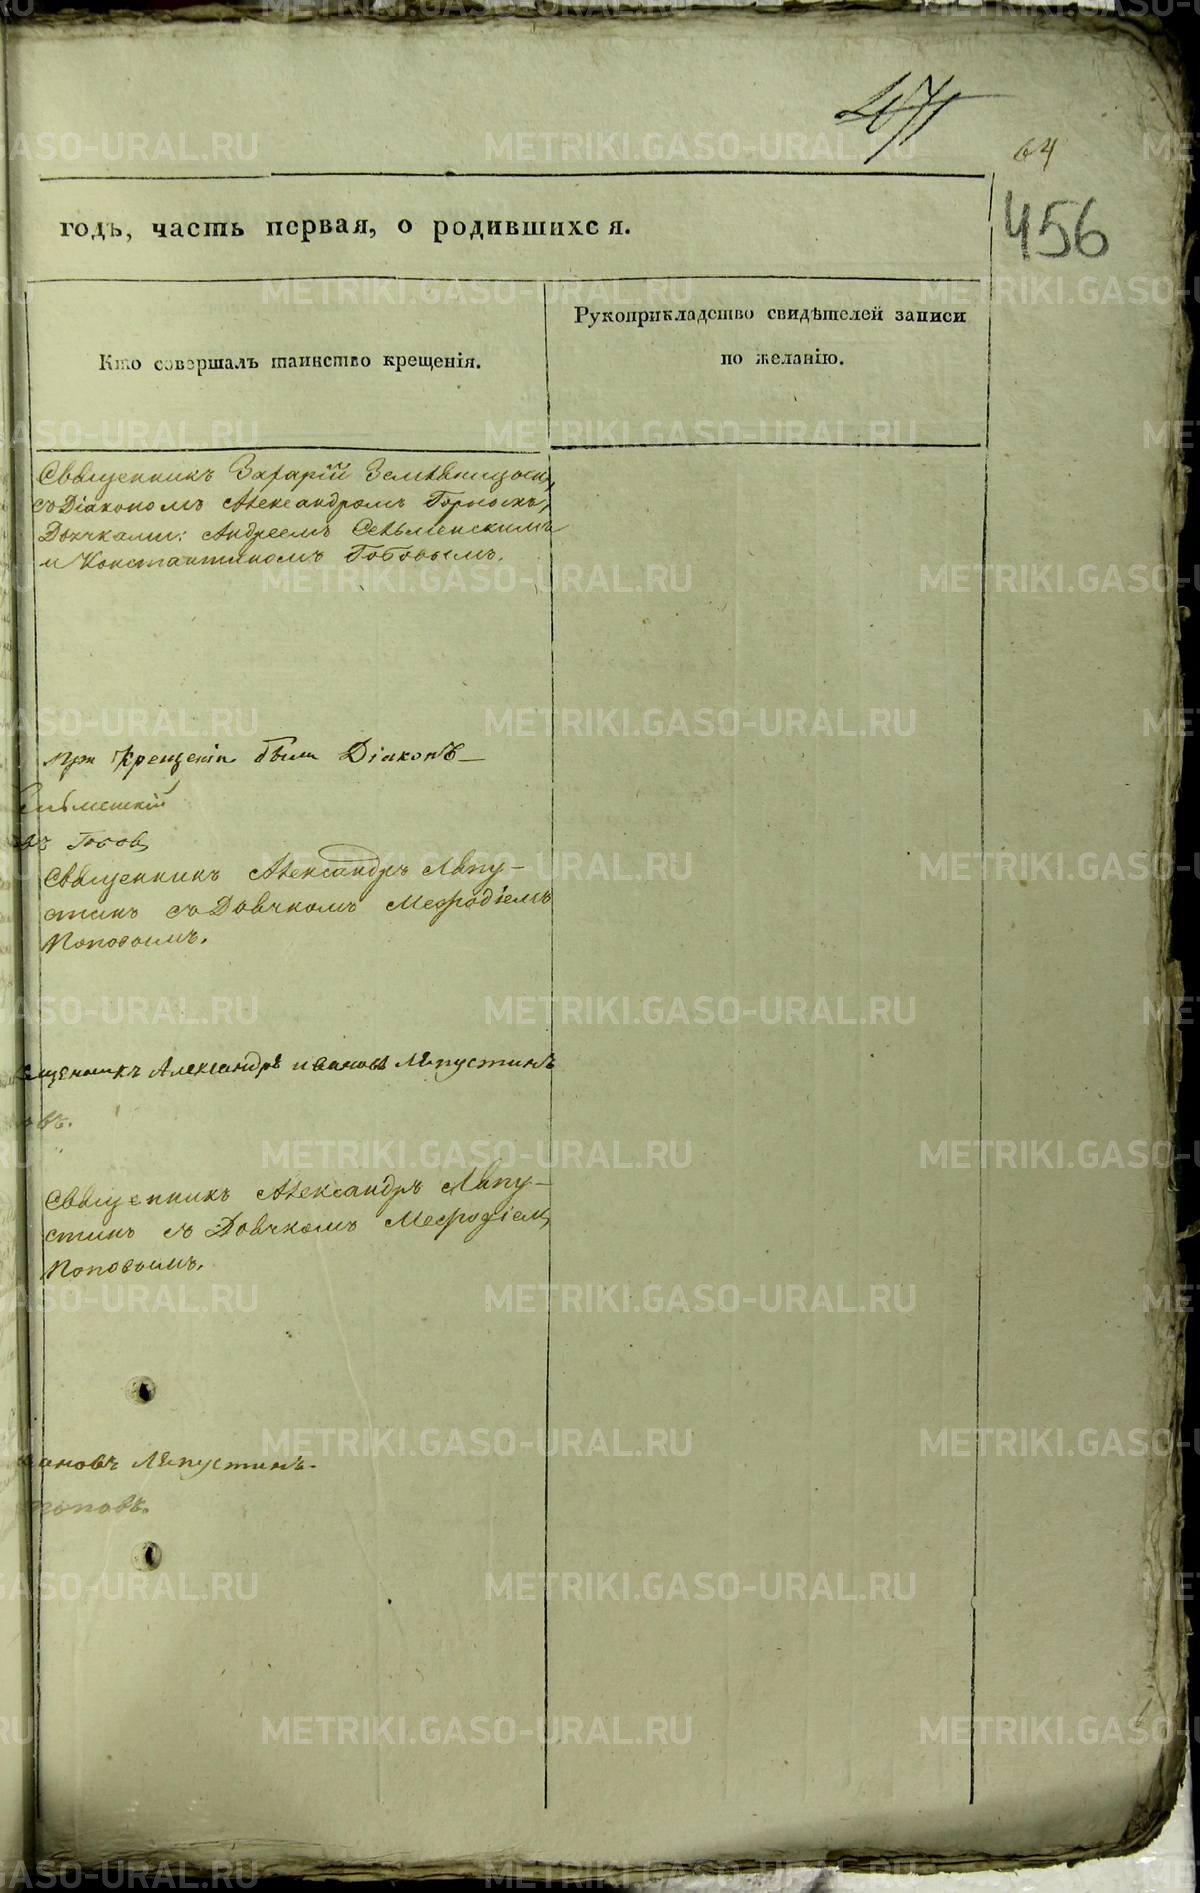 64
456
годъ, часть первая, о родившихся.
Кто совершалъ таинство крещенія.
Рукоприкладство свидѣтелей записи
по желанію.
Священникъ Захарій
съ Діакономъ Александромъ
Дьячками: Андреемъ Сельменскимъ
и Константиномъ Гобовымъ.
при крещеніи были Діаконъ
Гобов
Священникъ Александръ Ляпу-
стинъ съ Дьячкомъ Меѳодіемъ
Поповымъ.
Александръ Ивановъ Ляпустинъ
овъ.
Священникъ Александръ Ляпу-
стинъ съ Дьячкомъ Меѳодіем
Поповымъ.
ановъ Ляпустинъ.
поповъ.
METRIKI.GASO-URAL.RU